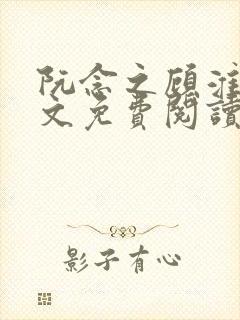 阮念之顧淮
文免費閱讀
影子有心